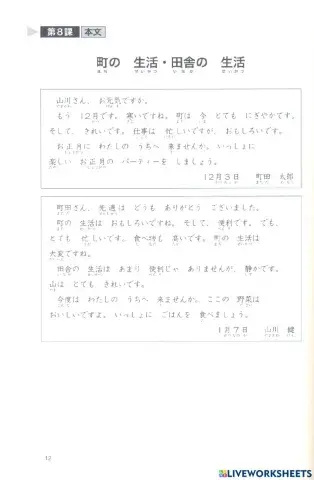 第8課 本文
町の 生活・田舎の 生活
山川さん、お元気ですか。
もう 12月です。寒いですね。町は 今 とても にぎやかです。
そして、きれいです。仕事は 忙しいですが、おもしろいです。
お正月に わたしの うちへ 来ませんか。いっしょに
楽しい お正月の パーティーを しましょう。
12月3日 町田 太郎
町田さん、先週は どうも ありがとう ございました。
町の 生活は おもしろいですね。そして、便利です。でも、
とても 忙しいです。食べ物も 高いです。町の 生活は
大変ですね。
田舎の 生活は あまり 便利じゃ ありませんが、静かです。
山は とても きれいです。
今度は わたしの うちへ 来ませんか。ここの 野菜は
おいしいですよ。いっしょに ごはんを 食べましょう。
1月7日 山川 健
12
LIVEWORKSHEETS